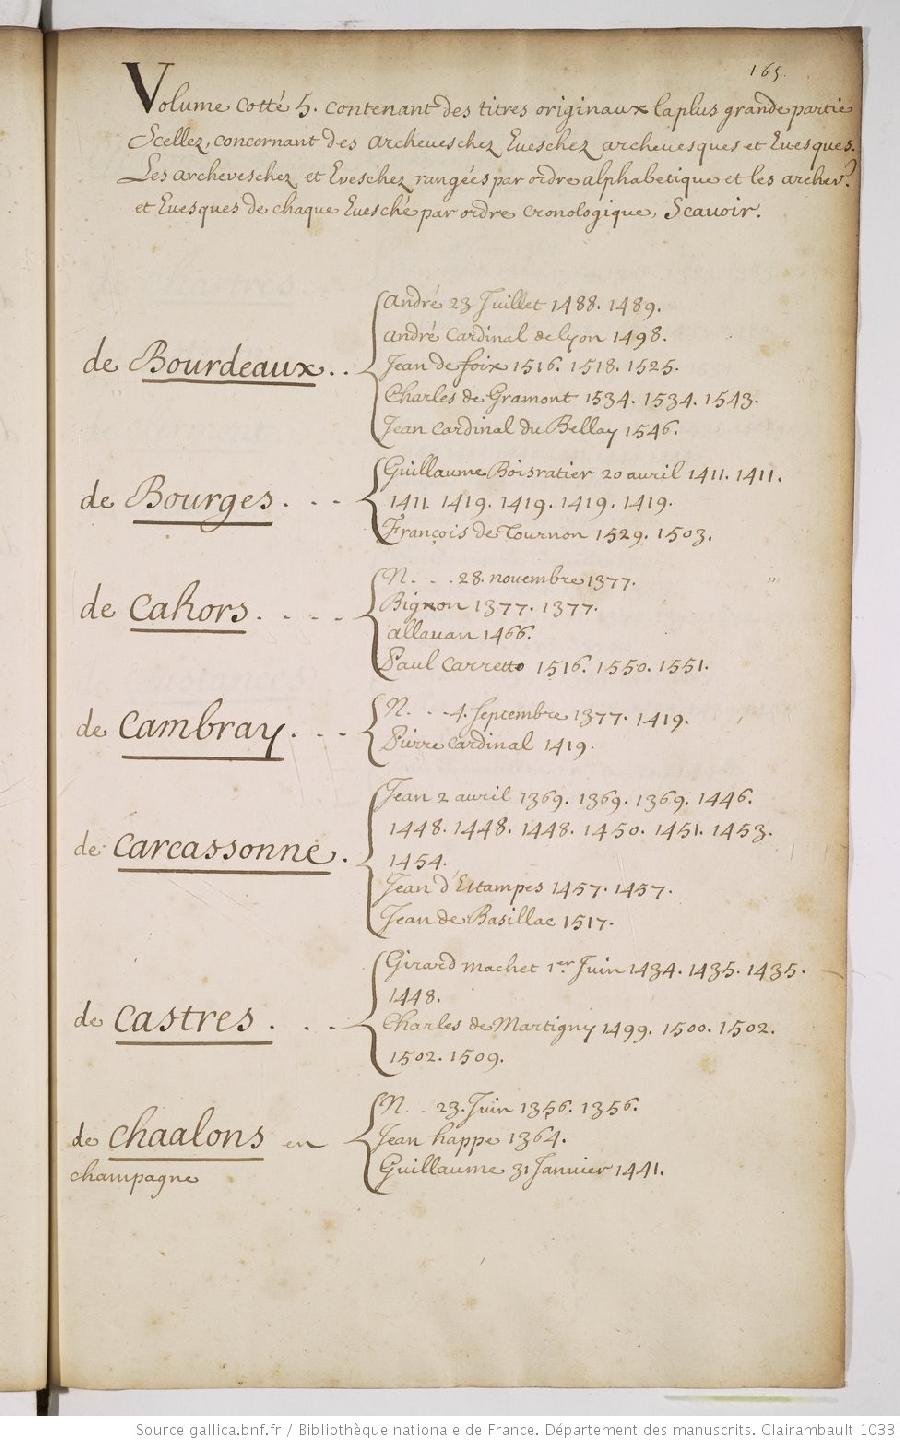 165.
Volume cotté 5. contenant des titres originaux la plus grande partie
Scellez, concernant des archeveschez Eueschez archeuesques et Euesques.
Les archeveschez et Eveschez rangées par ordre alphabetique et les archev.?
et Euesques de chaque Euesché par ordre cronologique, Scauoir.
de Bourdeaux..
andré 23 Juillet 1488. 1489.
andré Cardinal de lyon 1498.
Jean de foix 1516. 1518. 1525.
Charles de Gramont 1534. 1534. 1543.
Jean Cardinal du Bellay 1546.
de Bourges. . . .
Guillaume Boisratier 20 auril 1411. 1411.
1411. 1419. 1419. 1419. 1419.
François de Tournon 1529. 1503.
de Cahors. . . . .
N. . . 28. novembre 1377.
Bignon 1377. 1377.
allauan 1466.
Paul Carretto 1516. 1550. 1551.
de Cambray. . . .
N. . . 4. Septembre 1377. 1419.
Pierre Cardinal 1419.
de Carcassonne.
Jean 2 auril 1369. 1369. 1369. 1446.
1448. 1448. 1448. 1450. 1451. 1453.
1454.
Jean d'Estampes 1457. 1457.
Jean de Basillac 1517.
de Castres . . .
Girard machet 1er Juin 1434. 1435. 1435.
1448.
Charles de Martigny 1499. 1500. 1502.
1502. 1509.
de Chaalons en
champagne
N. . . 23. Juin 1356. 1356.
Jean happe 1364.
Guillaume 31 Januier 1441.
Source gallica.bnf.fr / Bibliothèque nationale de France. Département des manuscrits. Clairambault 1033